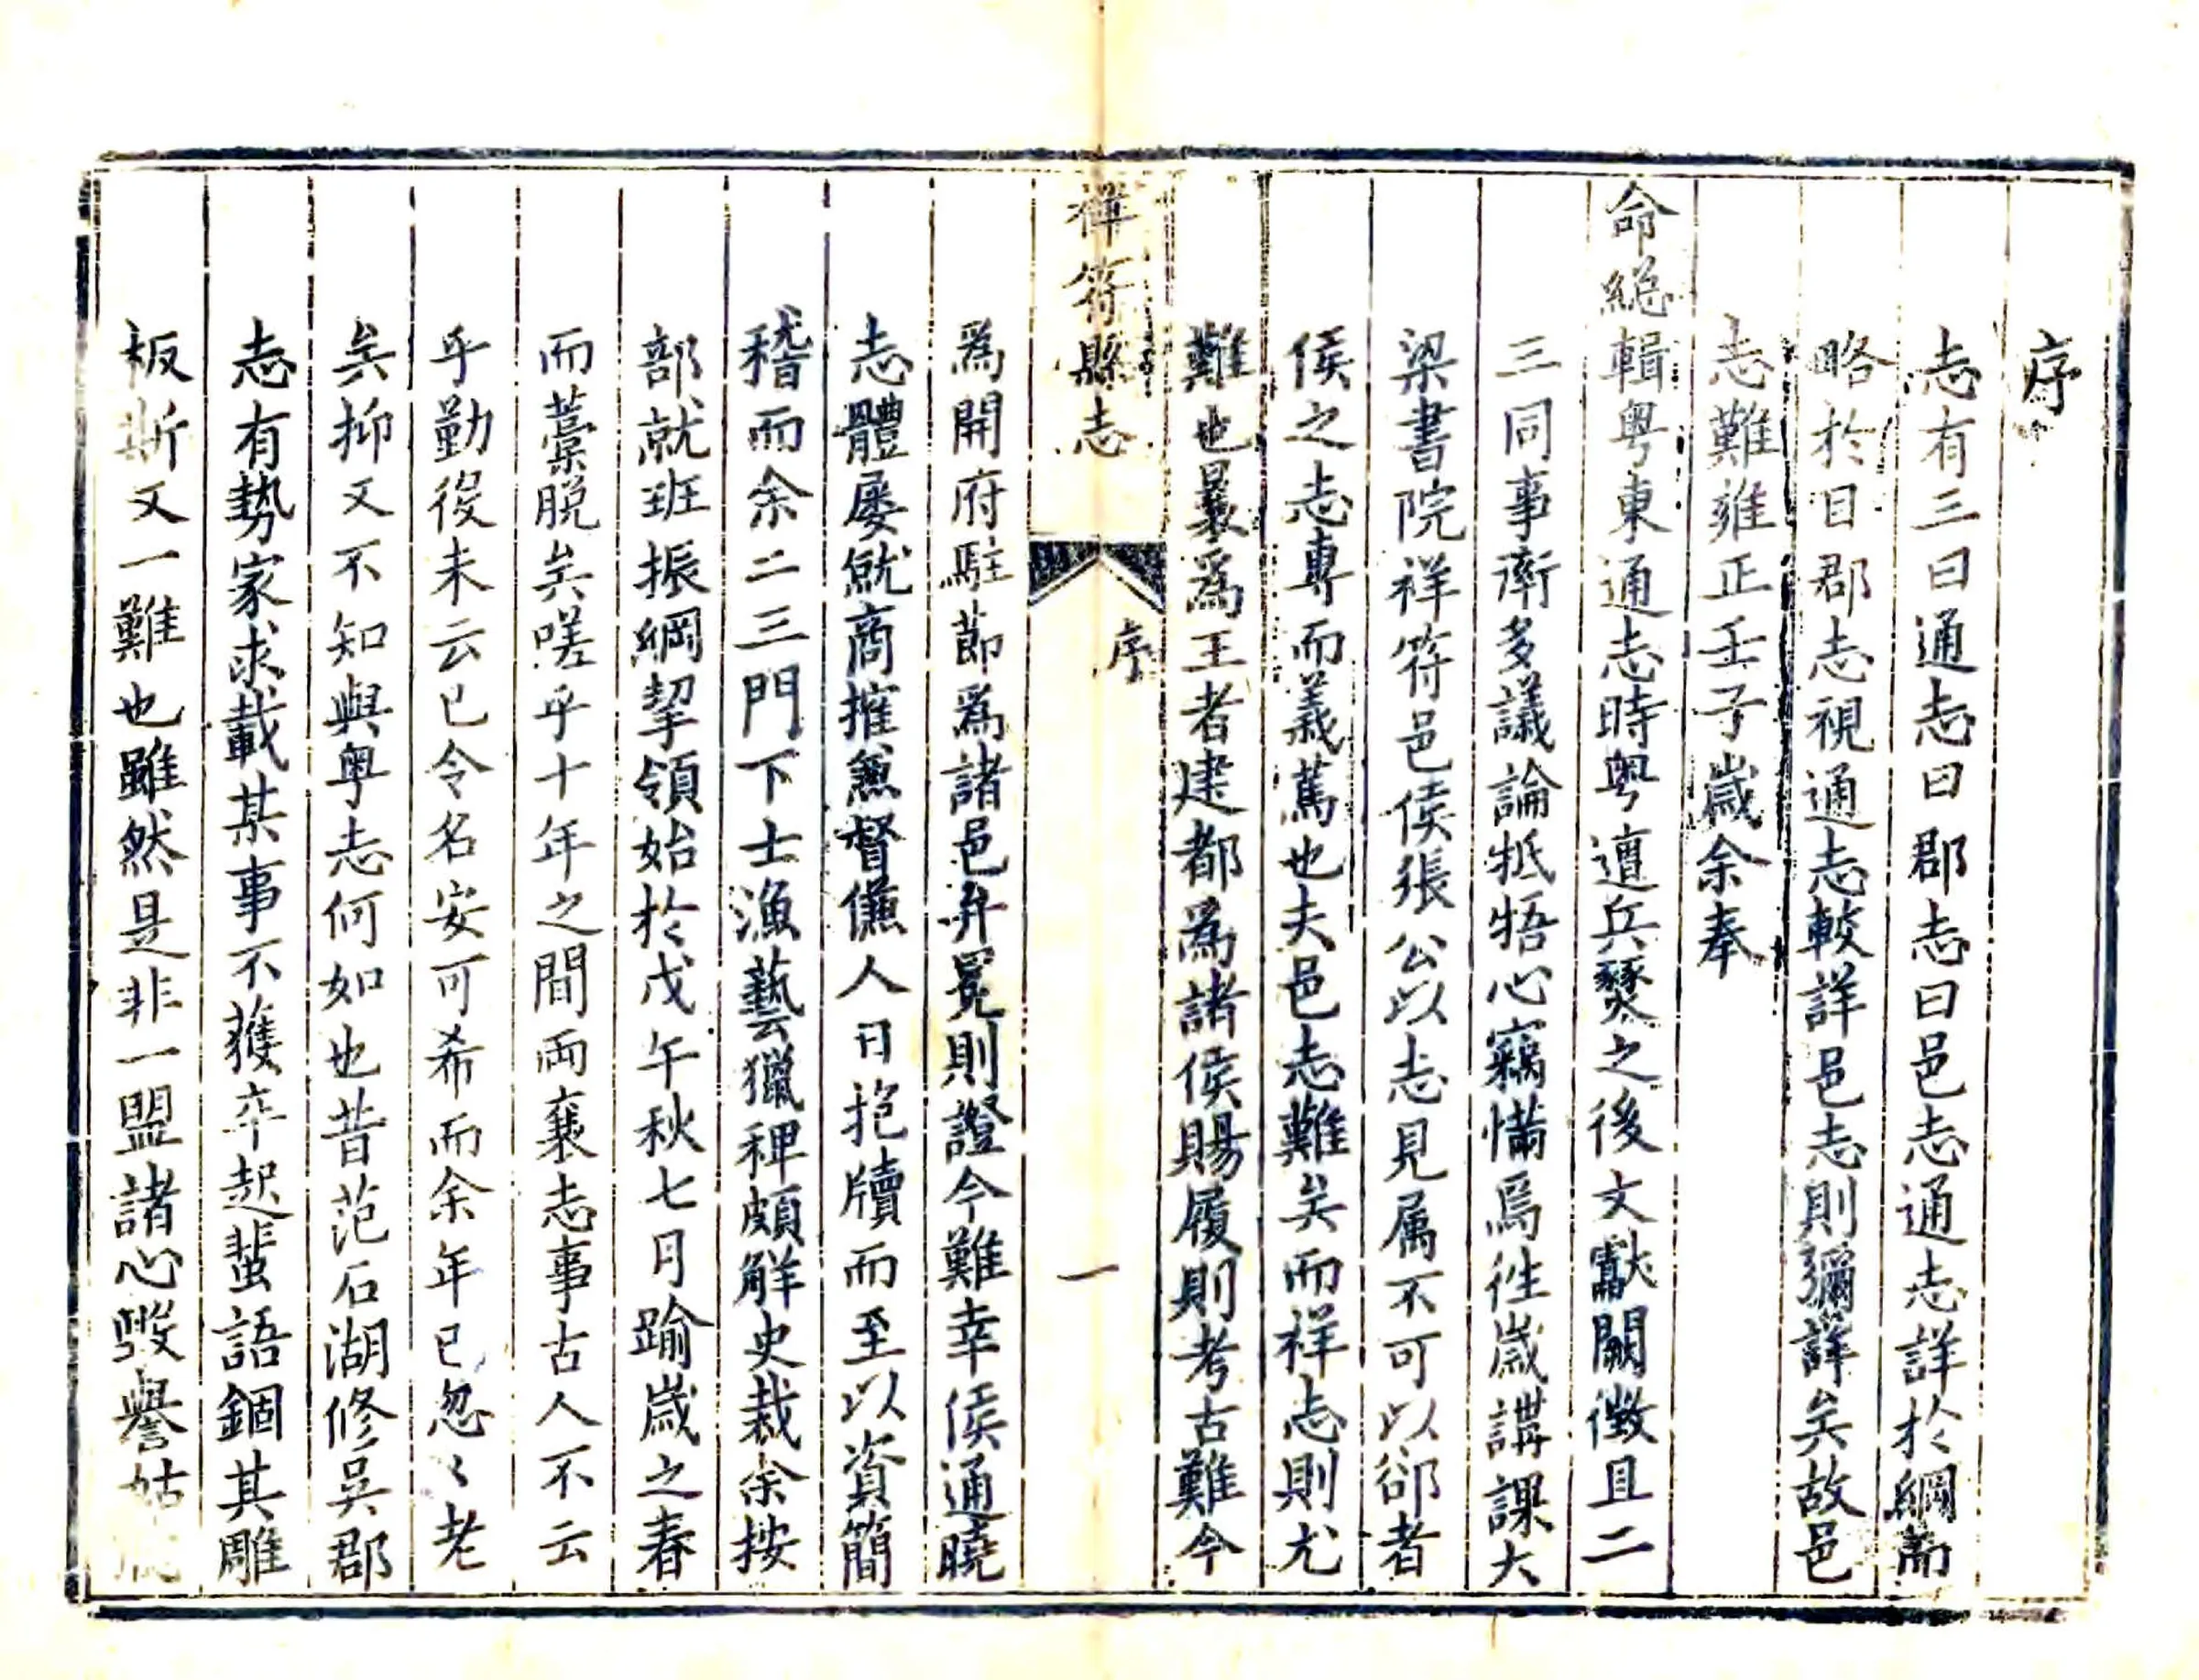 序
志有三曰通志曰郡志曰邑志通志詳於綱而
略於目郡志視通志較詳邑志則彌詳矣故邑
志難雍正壬子歲余奉
命總輯粵東通志時粵遭兵燹之後文獻闕徵且二
三同事漸多議論牴牾心竊懣焉徃歲講課大
梁書院祥符邑侯張公以志見属不可以卻者
侯之志專而義篤也夫邑志難矣而祥志則尤
難也曩爲王者建都爲諸侯賜履則考古難今
祥符縣志 序 一
爲開府駐節爲諸邑弁冕則證今難幸侯通曉
志體屡就商搉兼督傔人日抱牘而至以資簡
稽而余二三門下士漁藝獵稗頗解史裁余按
部就班振綱挈領始於戊午秋七月踰歲之春
而藁脱矣嗟乎十年之間兩襄志事古人不云
乎勤役未云已令名安可希而余年已忽〻老
矣抑又不知與粵志何如也昔范石湖修吳郡
志有勢家求載某事不獲卒起蜚語錮其雕
板斯又一難也雖然是非一盟諸心毀譽姑